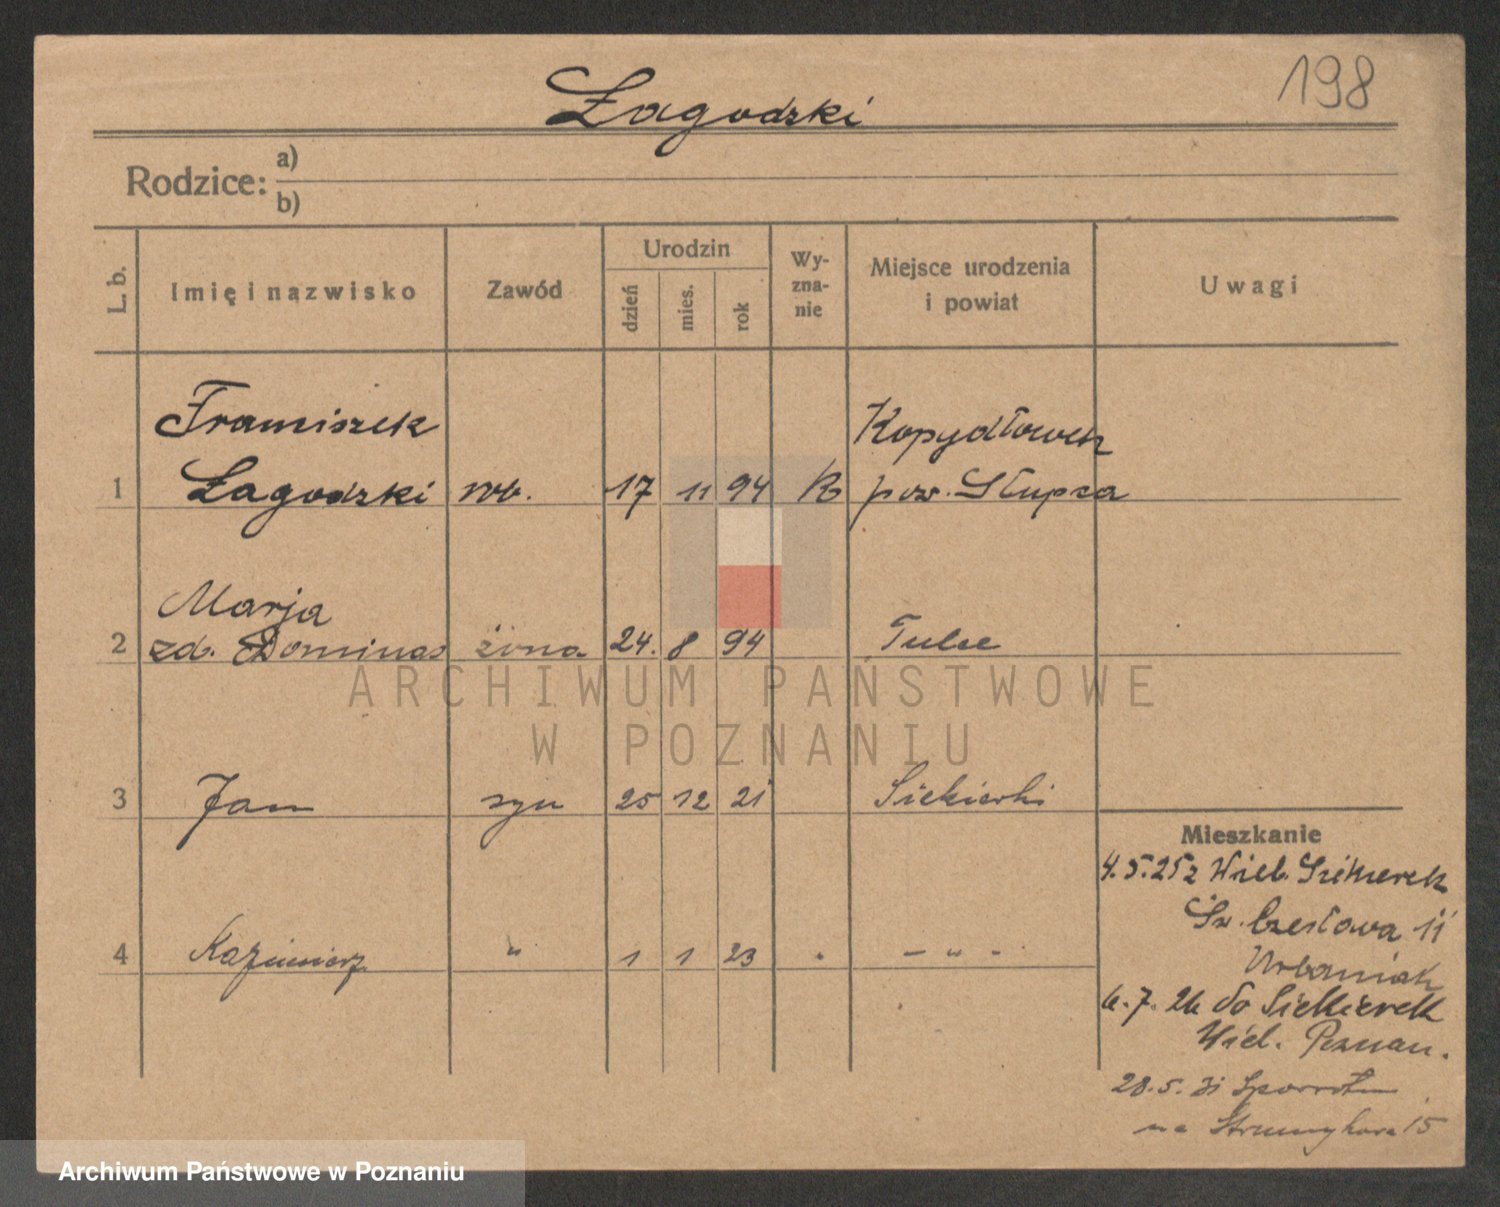 198
Łagodzki
Rodzice: a)
b)
L. b. Imię i nazwisko Zawód Urodzin dzień mies. rok Wy-zna-nie Miejsce urodzenia i powiat Uwagi
Franciszek Kopydłowek
1 Łagodzki rob. 17 11 94 R pow. Słupca
Marja
2 zd. Dominas żona 24. 8 94 Tulce
ARCHIWUM PAŃSTWOWE
W POZNANIU
3 Jan syn 25 12 21 Siekierki
Mieszkanie
4. 5. 25 z Wiel. Siekierek
Św. Czesława 11
4 Kazimierz " 1 1 23 - " -
Urbaniak
6. 7. 26 do Siekierek
Wiel. Poznan.
28. 5. 31
na 15
Archiwum Państwowe w Poznaniu